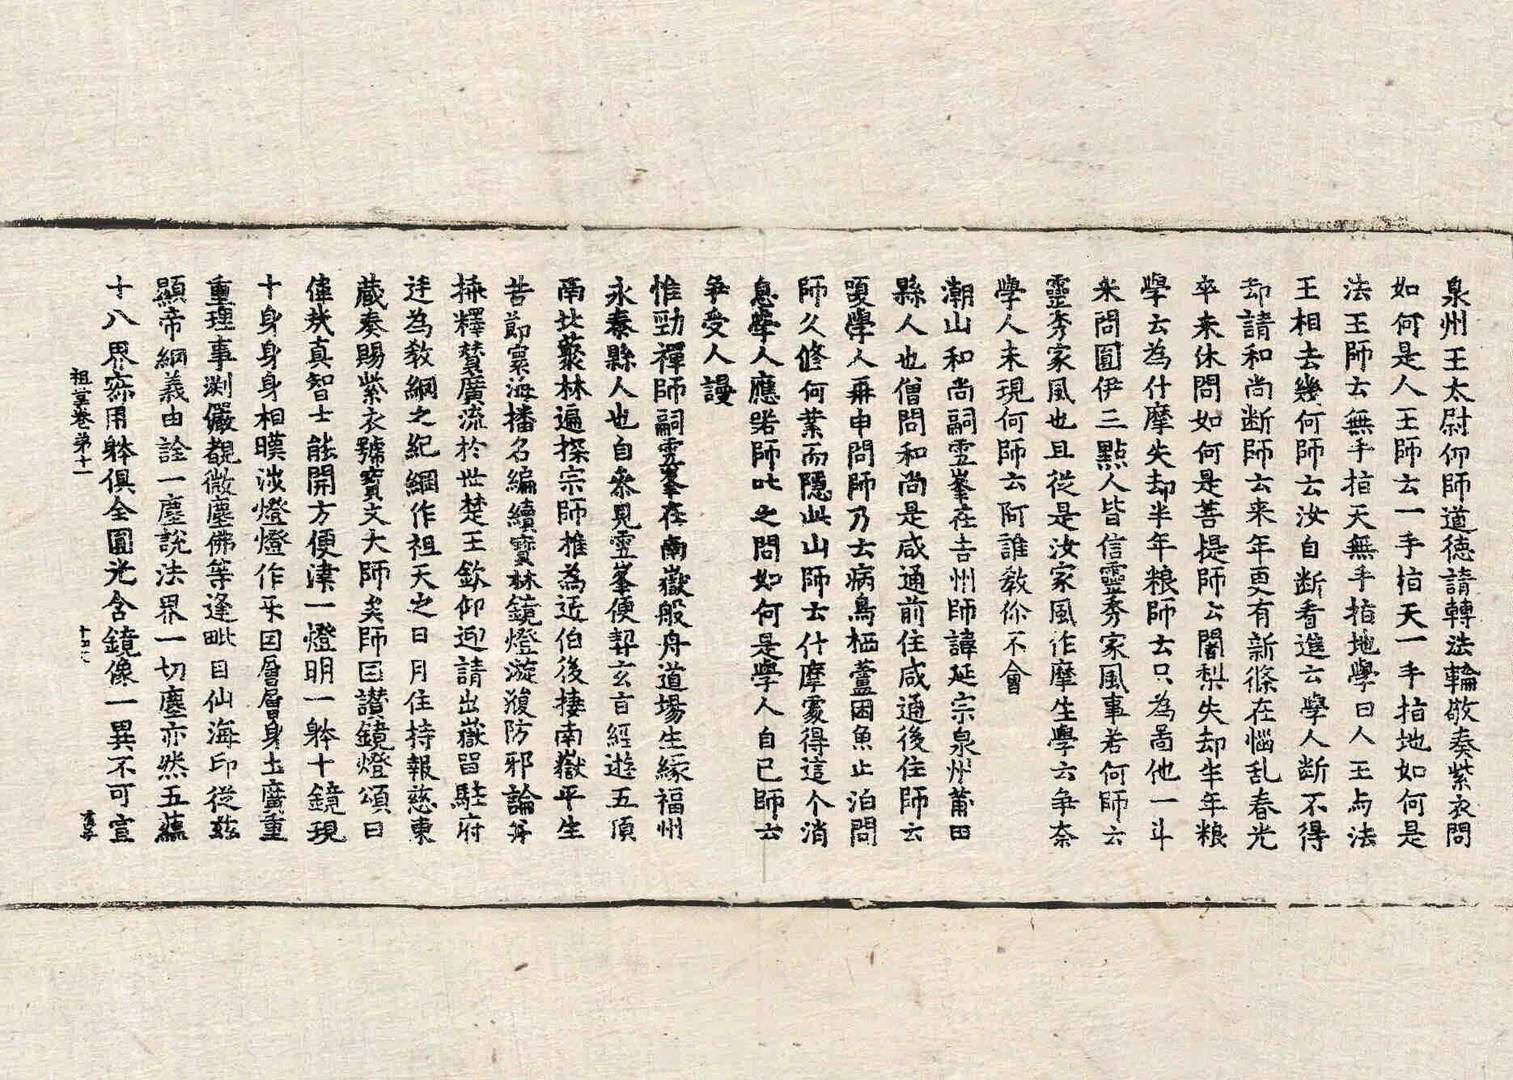 泉州王太尉仰師道德請轉法輪敬奏紫衣問
如何是人王師云一手指天一手指地如何是
法王師云無手指天無手指地學曰人王与法
王相去幾何師云汝自断看進云學人断不得
却請和尚断師云来年更有新條在惱乱春光
卒未休問如何是菩提師云闍梨失却半年粮
學云為什摩失却半年粮師云只為啚他一斗
米問圓伊三點人皆信靈秀家風事若何師云
靈秀家風也且從是汝家風作摩生學云争奈
學人未現何師云阿誰敎你不會
潮山和尚嗣雪峯在吉州師諱延宗泉州莆田
縣人也僧問和尚是咸通前住咸通後住師云
嗄學人再申問師乃云病鳥栖蘆困魚止泊問
師久修何業而隱此山師云什摩處得這个消
息學人應喏師叱之問如何是學人自己師云
争受人謾
惟勁禪師嗣雪峯在南嶽般舟道場生緣福州
永泰縣人也自叅見雪峯便契玄旨經遊五頂
南北藂林遍探宗師推為近伯後棲南嶽平生
苦節寰海播名編續寳林鏡燈漩澓防邪論等
棟釋賛廣流於世楚王欽仰迎請出嶽留駐府
迋為敎綱之紀綱作祖天之日月住持報慈東
藏奏賜紫衣號寳文大師矣師因讃鏡燈頌曰
偉㢤真智士能開方便津一燈明一躰十鏡現
十身身身相曗涉燈燈作互因層層身土廣重
重理事渕儼覩微塵佛等逢毗目仙海印從兹
顯帝網義由詮一塵說法界一切塵亦然五蘊
十八界寂用躰俱全圓光含鏡像一異不可宣
祖堂卷第十一